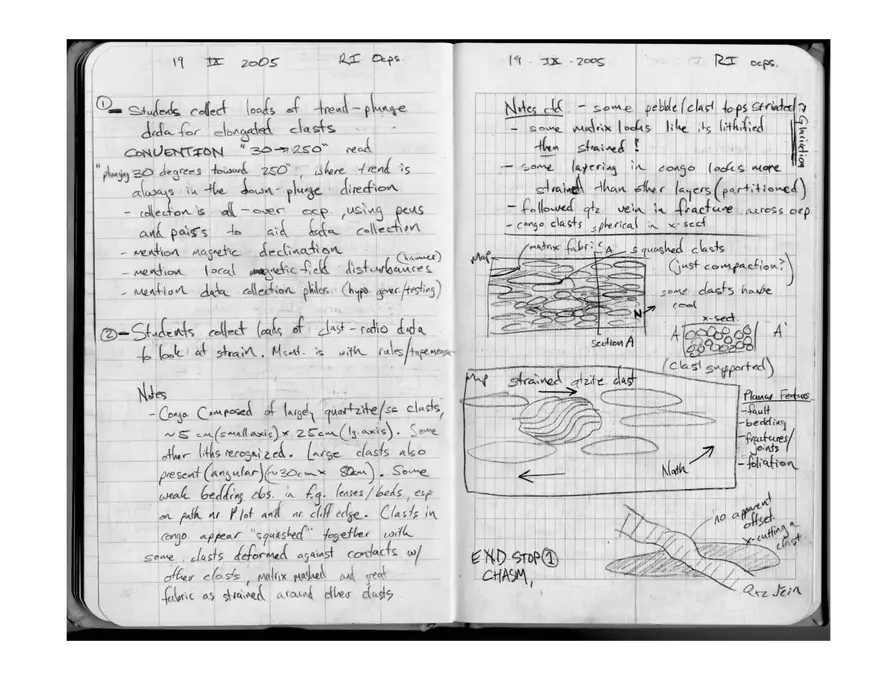 19 IX 2005 RI Ocps.
① - Students collect loads of trend-plunge
data for elongated clasts
CONVENTION "30→250" read
"plunging 30 degrees toward 250", where trend is
always in the down-plunge direction
- collection is all-over ocp, using pens
and pairs to aid data collection
- mention magnetic declination
- mention local magnetic field disturbances (hammer)
- mention data collection philos. (hypo gover./testing)
② - Students collect loads of clast-ratio data
to look at strain. Msmt. is with rules/tapemeasure
Notes
- Congo Composed of largely quartzite/ss clasts,
~5 cm (small axis) x 25cm (lg. axis). Some
other liths recognized. Large clasts also
present (angular) (~30cm x 80cm). Some
weak bedding obs. in f.g. lenses/beds, esp
on path nr Plot and nr cliff edge. Clasts in
congo appear "squashed" together with
some clasts deformed against contacts w/
other clasts, matrix mashed and great
fabric as strained around other clasts
19 . IX . 2005 RI ocps.
Notes ctd - some pebble/clast tops striated
→ Glaciation
- some matrix looks like its lithified
then strained!
- some layering in congo looks more
strained than other layers (partitioned)
- followed qtz vein in fracture across ocp
- congo clasts spherical in x-sect
Map
matrix fabric
A
squashed clasts
(just compaction?)
N
section A
some clasts have
x-sect.
A A'
(clast supported)
Map strained qtzite clast
North
Planar Features
- fault
- bedding
- fractures/
joints
- foliation
no apparent
offset
x-cutting a
clast
Qtz Vein
END STOP ①
CHASM,